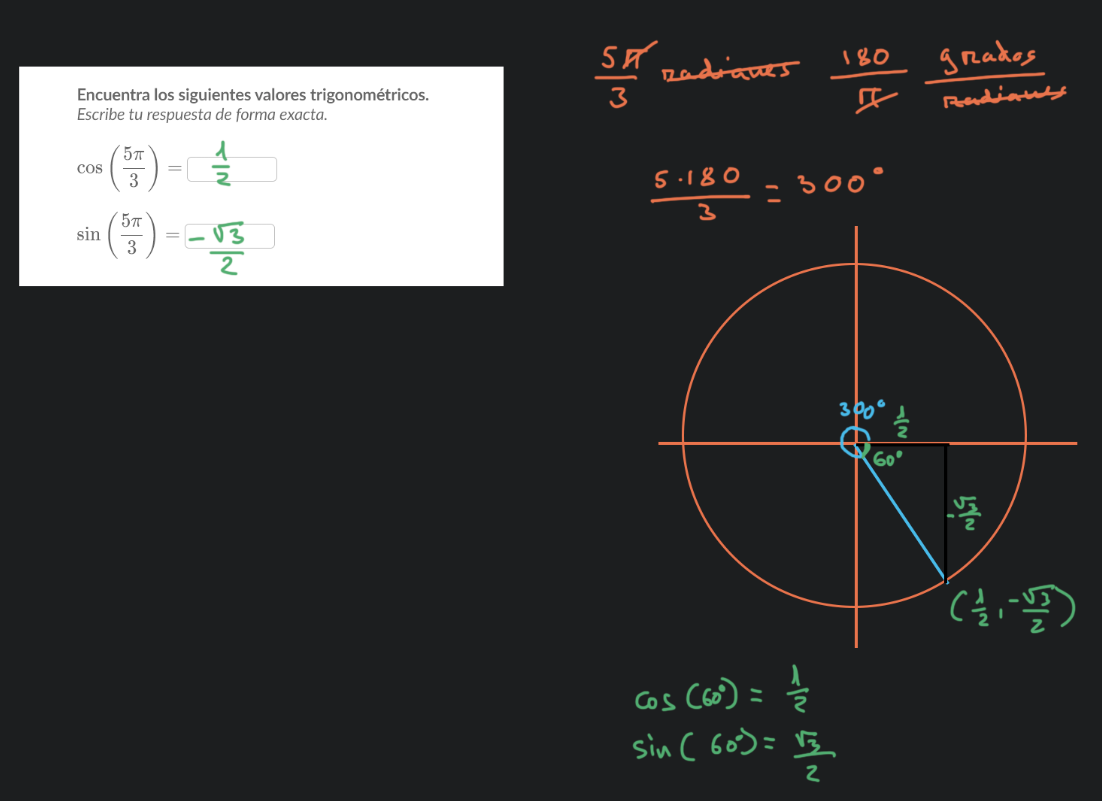 Encuentra los siguientes valores trigonométricos.
Escribe tu respuesta de forma exacta.
cos (5π/3) = 1/2
sin (5π/3) = -√3/2
5π/3 radianes 180/π grados/radianes
5·180/3 = 300°
300° 1/2
60°
-√3/2
(1/2, -√3/2)
cos (60°) = 1/2
sin ( 60°) = √3/2